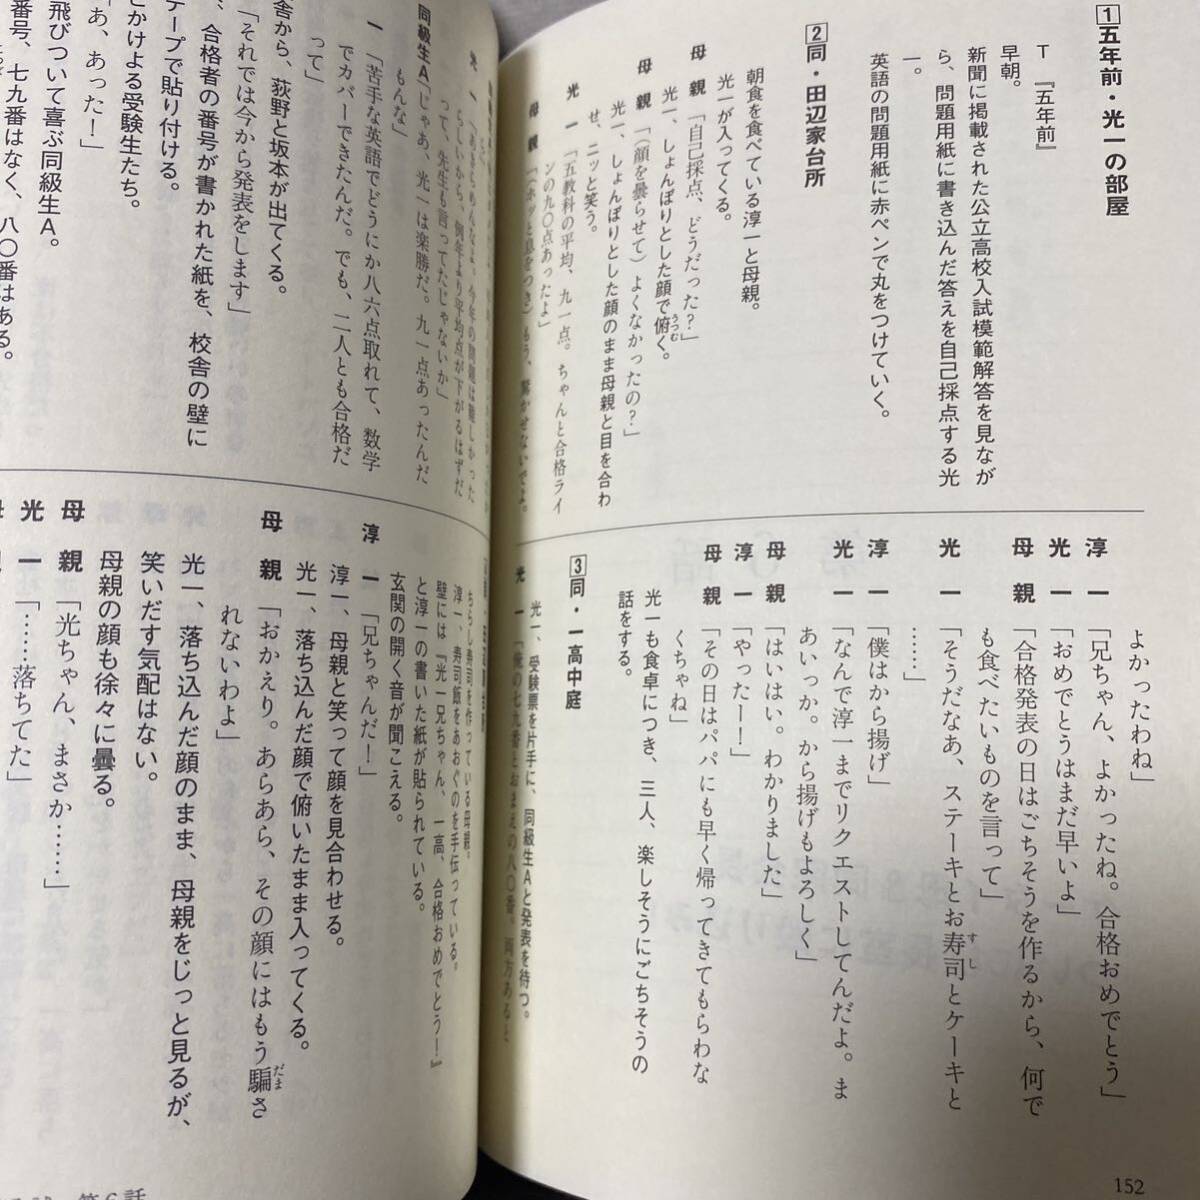 1 五年前・光一の部屋
T 『五年前』
早朝。
新聞に掲載された公立高校入試模範解答を見なが
ら、問題用紙に書き込んだ答えを自己採点する光
一。
英語の問題用紙に赤ペンで丸をつけていく。
2 同・田辺家台所
朝食を食べている淳一と母親。
光一が入ってくる。
母親「自己採点、どうだった?」
光一、しょんぼりとした顔で俯く。
うつむ
母親「(顔を曇らせて)よくなかったの?」
光一、しょんぼりとした顔のまま母親と目を合わ
せ、ニッと笑う。
光一「五教科の平均、九一点。ちゃんと合格ライ
ンの九〇点あったよ」
母親「(ホッと息をつき)もう、驚かせないでよ。
よかったわね」
淳一「兄ちゃん、よかったね。合格おめでとう」
光一「おめでとうはまだ早いよ」
母親「合格発表の日はごちそうを作るから、何で
も食べたいものを言って」
光一「そうだなあ、ステーキとお寿司とケーキと
すし
……」
淳一「僕はから揚げ」
光一「なんで淳一までリクエストしてんだよ。ま
あいっか。から揚げもよろしく」
母親「はいはい。わかりました」
淳一「やったー!」
母親「その日はパパにも早く帰ってきてもらわな
くちゃね」
光一も食卓につき、三人、楽しそうにごちそうの
話をする。
3 同・一高中庭
光一、受験票を片手に、同級生Aと発表を待つ。
光一「俺の七九番とおまえの八〇番。両方あると
光一「あきらめんなよ。今年の問題は難しかった
らしいから、例年より平均点が下がるはずだ
って、先生も言ってたじゃないか」
同級生A「じゃあ、光一は楽勝だ。九一点あったんだ
もんな」
光一「苦手な英語でどうにか八六点取れて、数学
でカバーできたんだ。でも、二人とも合格だ
って」
舎から、荻野と坂本が出てくる。
「それでは今から発表をします」
、合格者の番号が書かれた紙を、校舎の壁に
テープで貼り付ける。
とかけよる受験生たち。
「あ、あった!」
飛びついて喜ぶ同級生A。
番号、七九番はなく、八〇番はある。
ちらし寿司を作っている母親。
淳一、寿司飯をあおぐのを手伝っている。
壁には『光一兄ちゃん、一高、合格おめでとう!』
と淳一の書いた紙が貼られている。
玄関の開く音が聞こえる。
淳一「兄ちゃんだ!」
淳一、母親と笑って顔を見合わせる。
光一、落ち込んだ顔で俯いたまま入ってくる。
母親「おかえり。あらあら、その顔にはもう騙さ
だま
れないわよ」
光一、落ち込んだ顔のまま、母親をじっと見るが、
笑いだす気配はない。
母親の顔も徐々に曇る。
母親「光ちゃん、まさか……」
光一「……落ちてた」
第6話
152